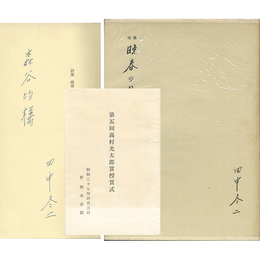 詩集
晩春の日に
田中冬二
第五回高村光太郎賞授賞式
昭和三十七年四月三日
森谷均様
田中冬二